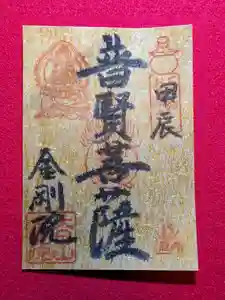 甲辰
普賢菩薩
金剛流